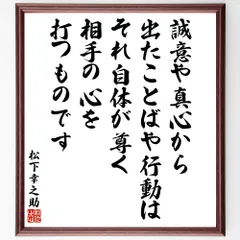 誠意や真心から
出たことばや行動は
それ自体が尊く
相手の心を
打つものです
松下幸之助